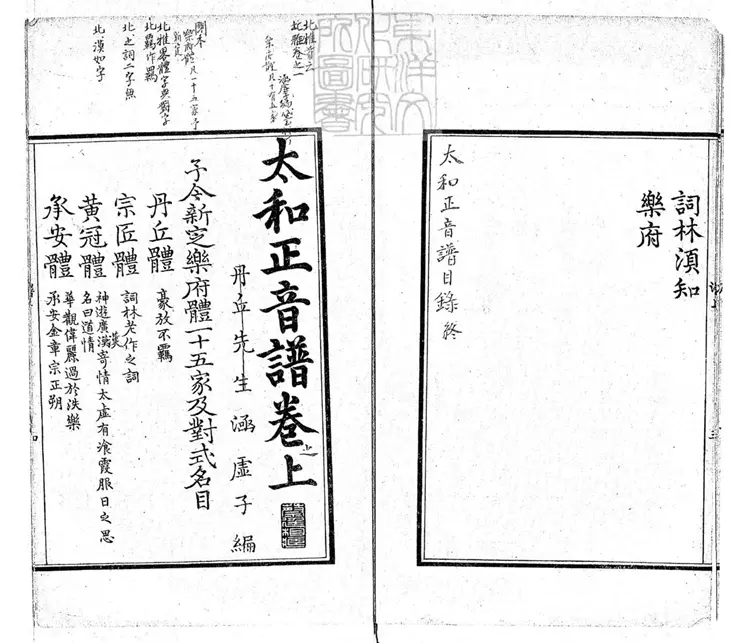 詞林湏知
樂府
太和正音譜目錄終
太和正音譜卷上
丹丘先生涵虛子編
予今新定樂府體一十五家及對式名目
丹丘體
豪放不羈
宗匠體
詞林老作之詞
黃冠體
神遊廣漠寄情太虛有飡霞服日之思
名曰道情
承安體
華觀偉麗過於泆樂
承安金章宗正朔
漢
北漢如字